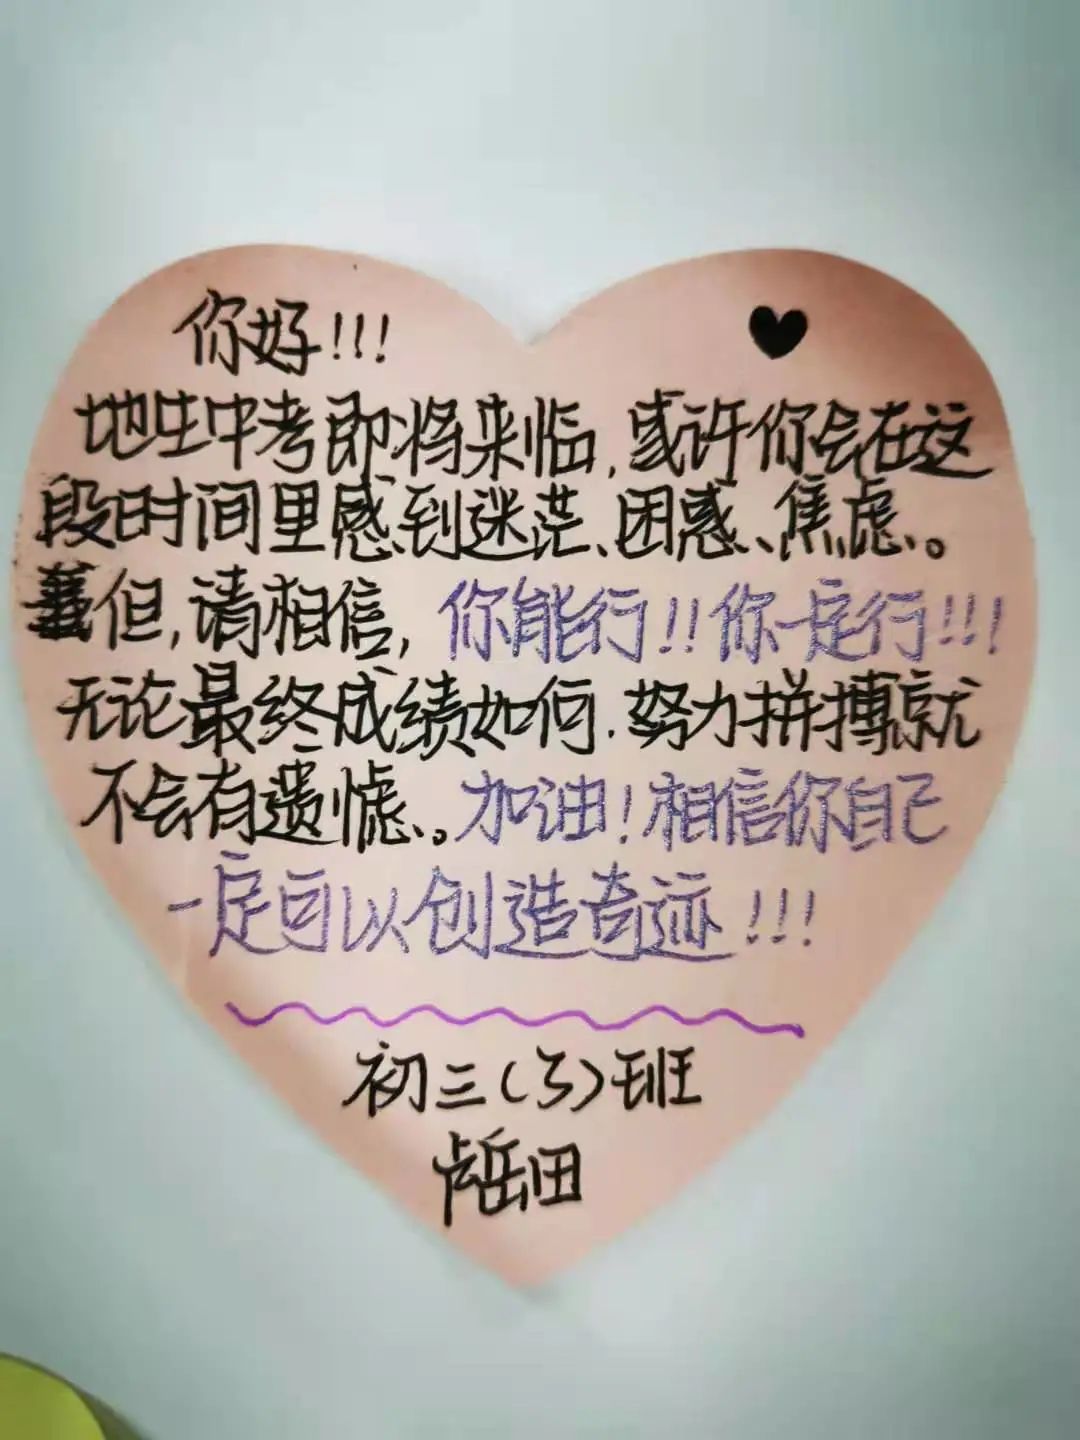 你好!!!
地生中考即将来临,或许你会在这
段时间里感到迷茫、困惑、焦虑。
但,请相信,你能行!!你一定行!!!
无论最终成绩如何,努力拼搏就
不会有遗憾。加油!相信你自己
一定可以创造奇迹!!!
初三(3)班
卢岳田